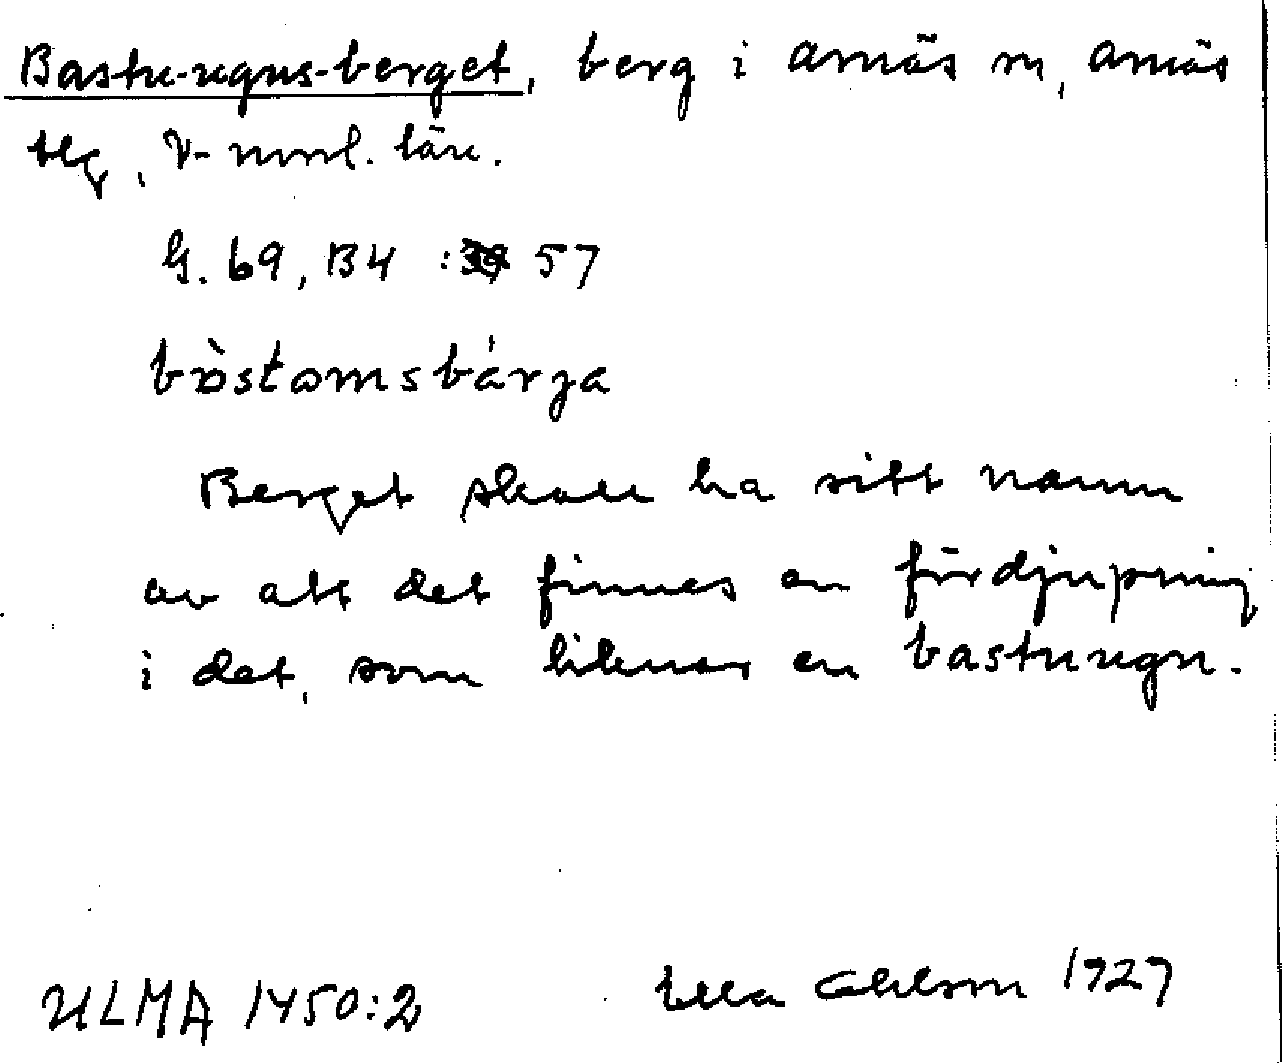 Bastu-ugns-berget, berg i Arnäs sn, Arnäs
tlg, V-norrl. län.
G. 69, B4 : 57
bòstomsbárja
Berget skall ha sitt namn
av att det finnes en fördjupning
i det, som liknar en bastuugn.
ULMA 1450:2
Ella Ohlson 1927